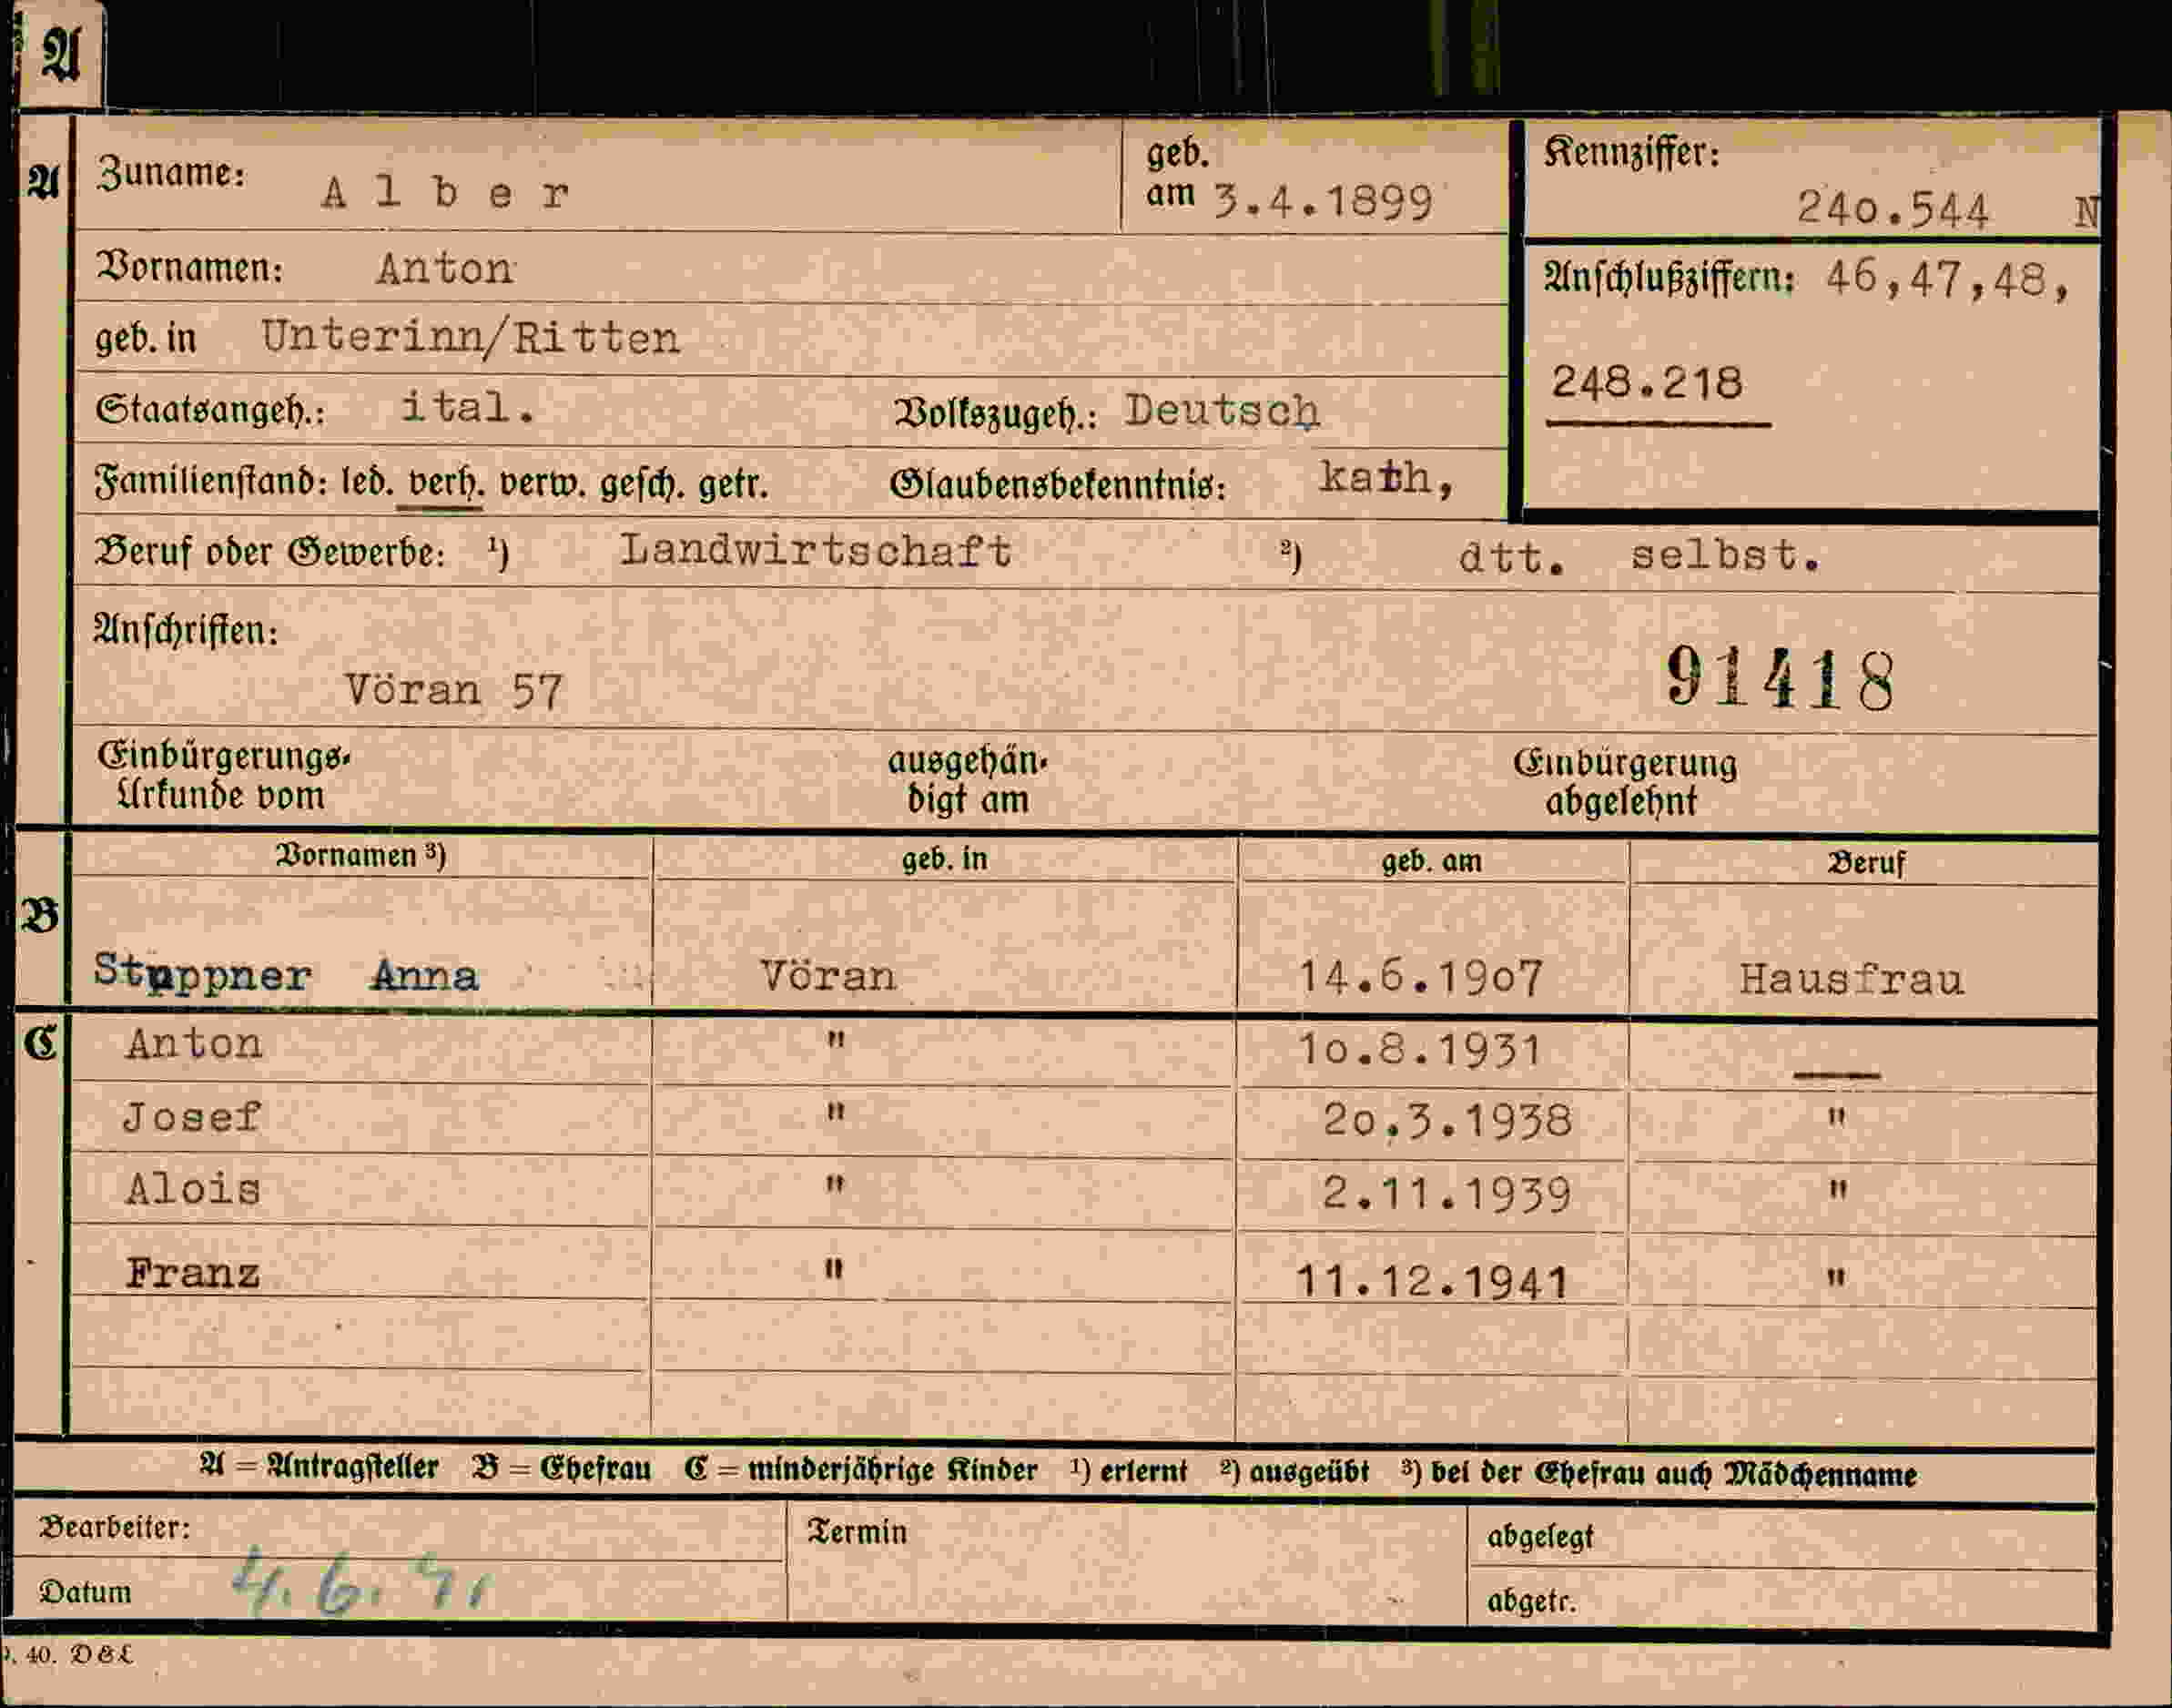 A
A Zuname: Alber geb. am 3.4.1899 Kennziffer: 240.544 N
Vornamen: Anton Anschlußziffern: 46,47,48,
geb. in Unterinn/Ritten
248.218
Staatsangeh.: ital. Volkszugeh.: Deutsch
Familienstand: led. verh. verw. gesch. getr. Glaubensbekenntnis: kath,
Beruf oder Gewerbe: ¹) Landwirtschaft ²) dtt. selbst.
Anschriften:
Vöran 57 91418
Einbürgerungs-Urkunde vom ausgehän-digt am Einbürgerung abgelehnt
B Vornamen ³) geb. in geb. am Beruf
Stuppner Anna Vöran 14.6.1907 Hausfrau
C Anton " 10.8.1931 —
Josef " 20.3.1938 "
Alois " 2.11.1939 "
Franz " 11.12.1941 "
A = Antragsteller B = Ehefrau C = minderjährige Kinder ¹) erlernt ²) ausgeübt ³) bei der Ehefrau auch Mädchenname
Bearbeiter: Termin abgelegt
Datum 4.6.41 abgetr.
40. D&L